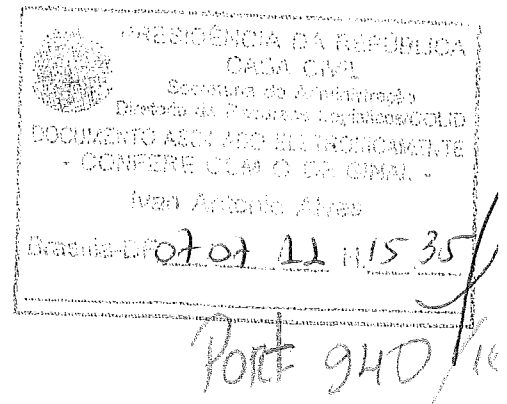 PRESIDÊNCIA DA REPÚBLICA
CASA CIVIL
Secretaria de Administração
Diretoria de Recursos Logísticos/COLID
DOCUMENTO ASSINADO ELETRONICAMENTE
- CONFERE COM O ORIGINAL -
Ivan Antonio Alves
Brasília-DF 07 07 11 H. 15 35
Port 940